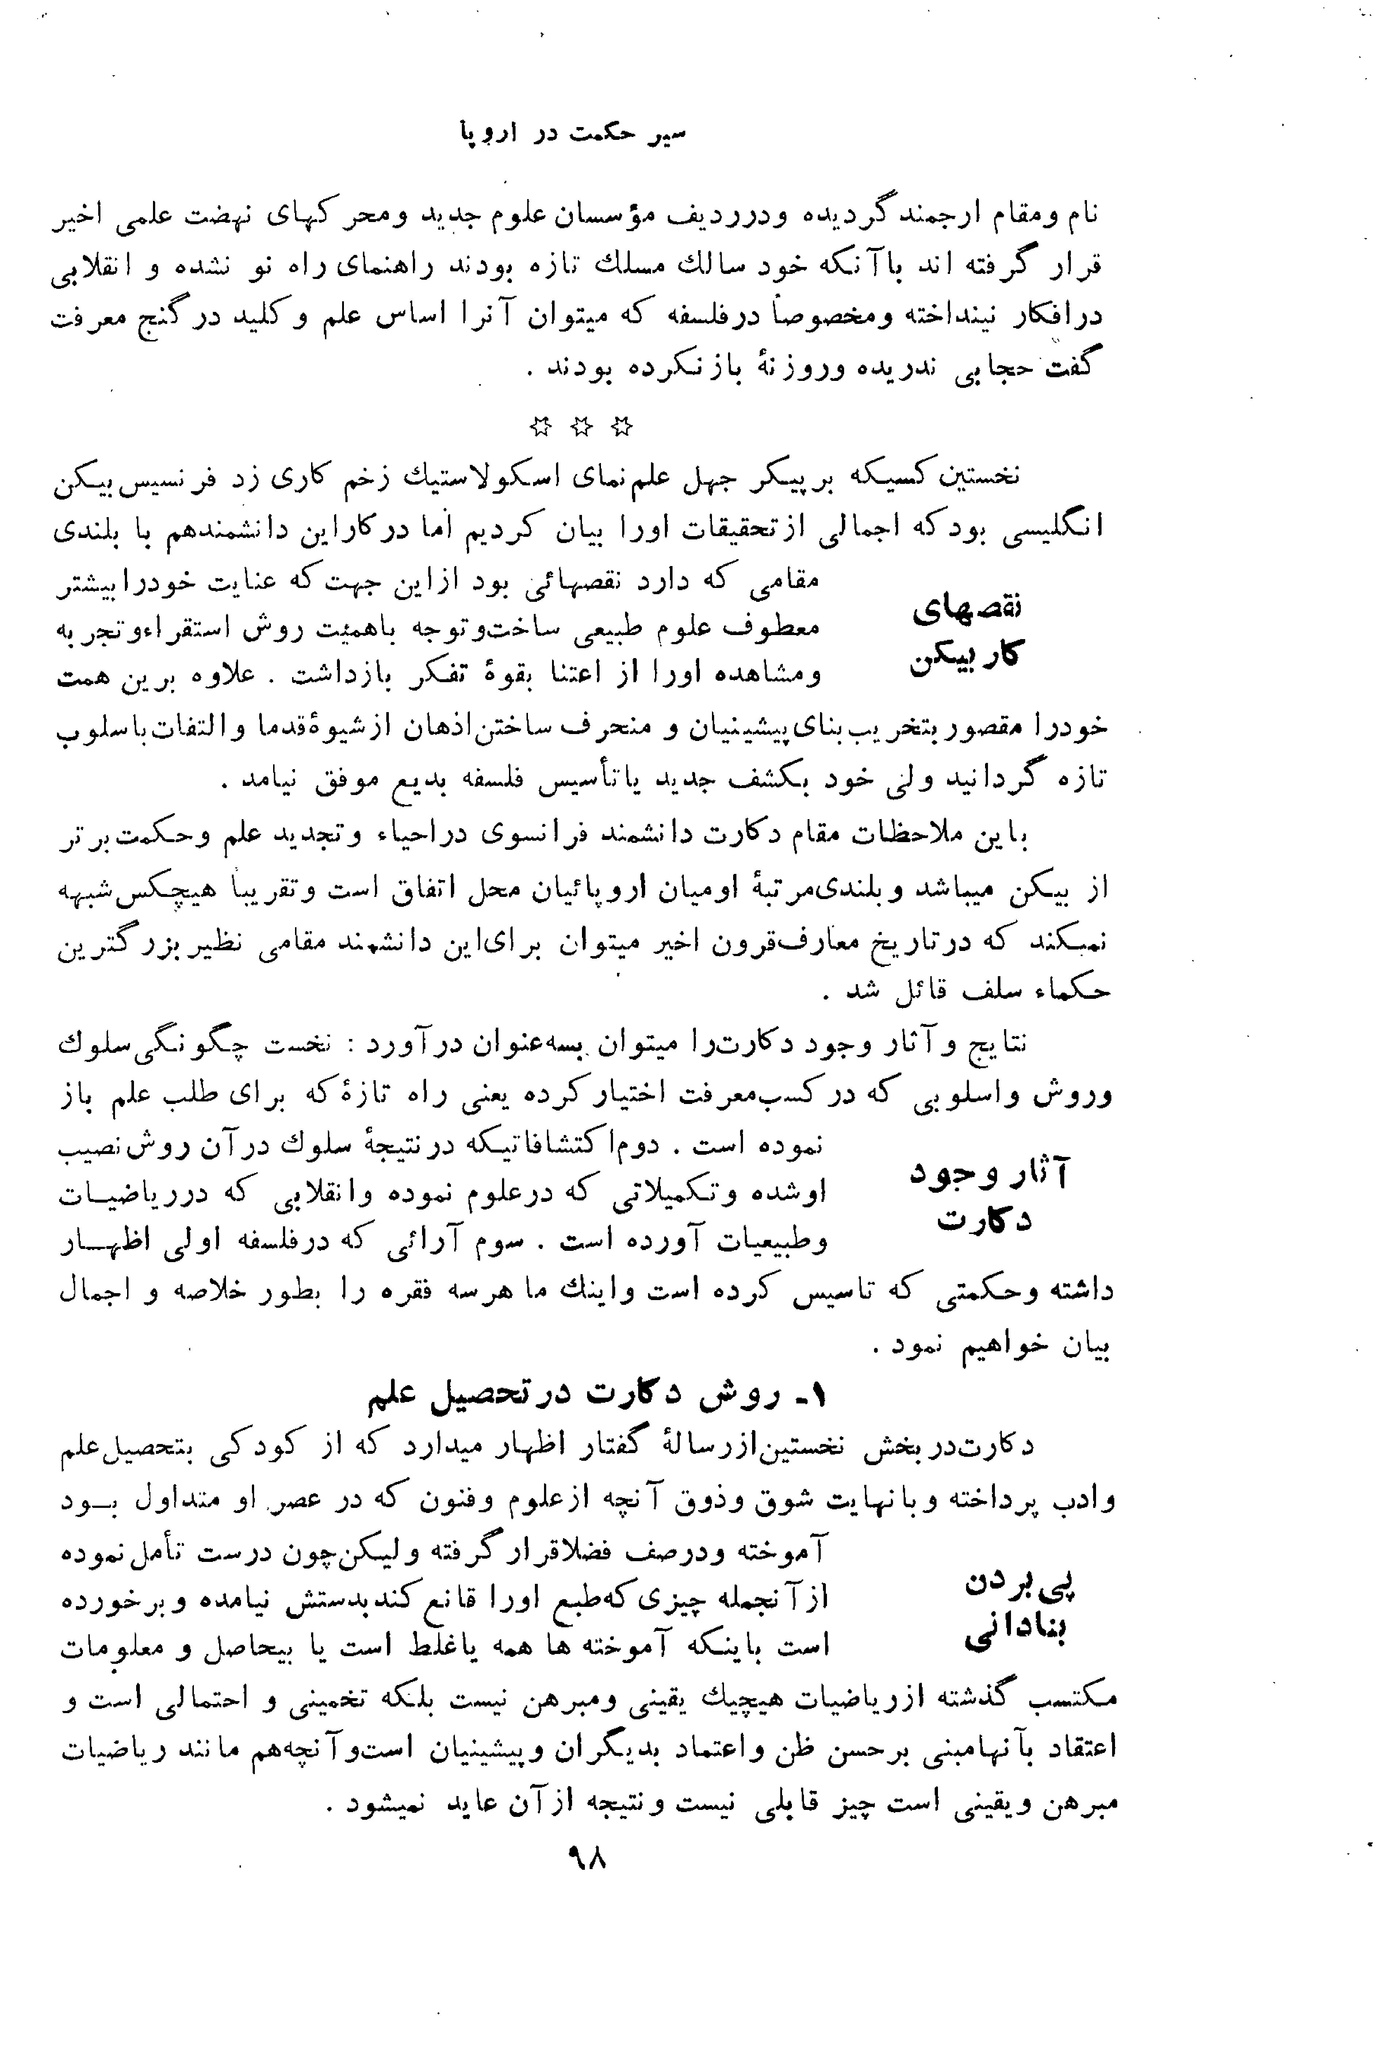 سیر حکمت در اروپا
نام ومقام ارجمند گردیده ودرردیف مؤسسان علوم جدید ومحرکهای نهضت علمی اخیر
قرار گرفته اند باآنکه خود سالك مسلك تازه بودند راهنمای راه نو نشده و انقلابی
درافکار نینداخته ومخصوصاً درفلسفه که میتوان آنرا اساس علم وکلید درگنج معرفت
گفت حجابی ندریده وروزنهٔ بازنکرده بودند .
☆ ☆ ☆
نخستین کسیکه برپیکر جهل علم‌نمای اسکولاستیك زخم کاری زد فرنسیس بیکن
انگلیسی بودکه اجمالی ازتحقیقات اورا بیان کردیم اما درکاراین دانشمندهم با بلندی
نقصهای
کار بیکن
مقامی که دارد نقصهائی بود ازاین جهت‌که عنایت خودرا بیشتر
معطوف علوم طبیعی ساخت‌وتوجه باهمیت روش استقراءوتجربه
ومشاهده اورا از اعتنا بقوهٔ تفکر بازداشت . علاوه برین همت
خودرا مقصور بتخریب‌بنای‌پیشینیان و منحرف ساختن‌اذهان ازشیوهٔ‌قدما والتفات‌باسلوب
تازه گردانید ولی خود بکشف جدید یاتأسیس فلسفه بدیع موفق نیامد .
باین ملاحظات مقام دکارت دانشمند فرانسوی دراحیاء وتجدید علم وحکمت‌برتر
از بیکن میباشد وبلندی‌مرتبهٔ اومیان اروپائیان محل اتفاق است وتقریباً هیچکس‌شبهه
نمیکند که درتاریخ معارف‌قرون اخیر میتوان برای‌این دانشمند مقامی نظیربزرگترین
حکماء سلف قائل شد .
نتایج وآثار وجود دکارت‌را میتوان بسه‌عنوان درآورد : نخست چگونگی‌سلوك
وروش واسلوبی که درکسب‌معرفت اختیارکرده یعنی راه تازهٔ‌که برای طلب علم باز
آثار وجود
دکارت
نموده است . دوم‌اکتشافاتیکه درنتیجهٔ سلوك درآن روش‌نصیب
اوشده وتکمیلاتی که درعلوم نموده وانقلابی که درریاضیـات
وطبیعیات آورده است . سوم آرائی که درفلسفه اولی اظهـار
داشته وحکمتی که تاسیس کرده است واینك ما هرسه فقره را بطور خلاصه و اجمال
بیان خواهیم نمود .
۱ـ روش دکارت درتحصیل علم
دکارت‌دربخش نخستین‌ازرسالهٔ گفتار اظهار میدارد که از کودکی بتحصیل‌علم
وادب پرداخته وبانهایت شوق وذوق آنچه ازعلوم وفنون که در عصر او متداول بـود
پی‌بردن
بنادانی
آموخته ودرصف فضلاقرارگرفته ولیکن‌چون درست تأمل‌نموده
ازآنجمله چیزی‌که‌طبع اورا قانع کندبدستش نیامده وبرخورده
است باینکه آموخته ها همه یاغلط است یا بیحاصل و معلومات
مکتسب گذشته ازریاضیات هیچیك یقینی ومبرهن نیست بلکه تخمینی و احتمالی است و
اعتقاد بآنهامبنی برحسن ظن واعتماد بدیگران وپیشینیان است‌وآنچه‌هم مانند ریاضیات
مبرهن ویقینی است چیز قابلی نیست ونتیجه ازآن عاید نمیشود .
۹۸